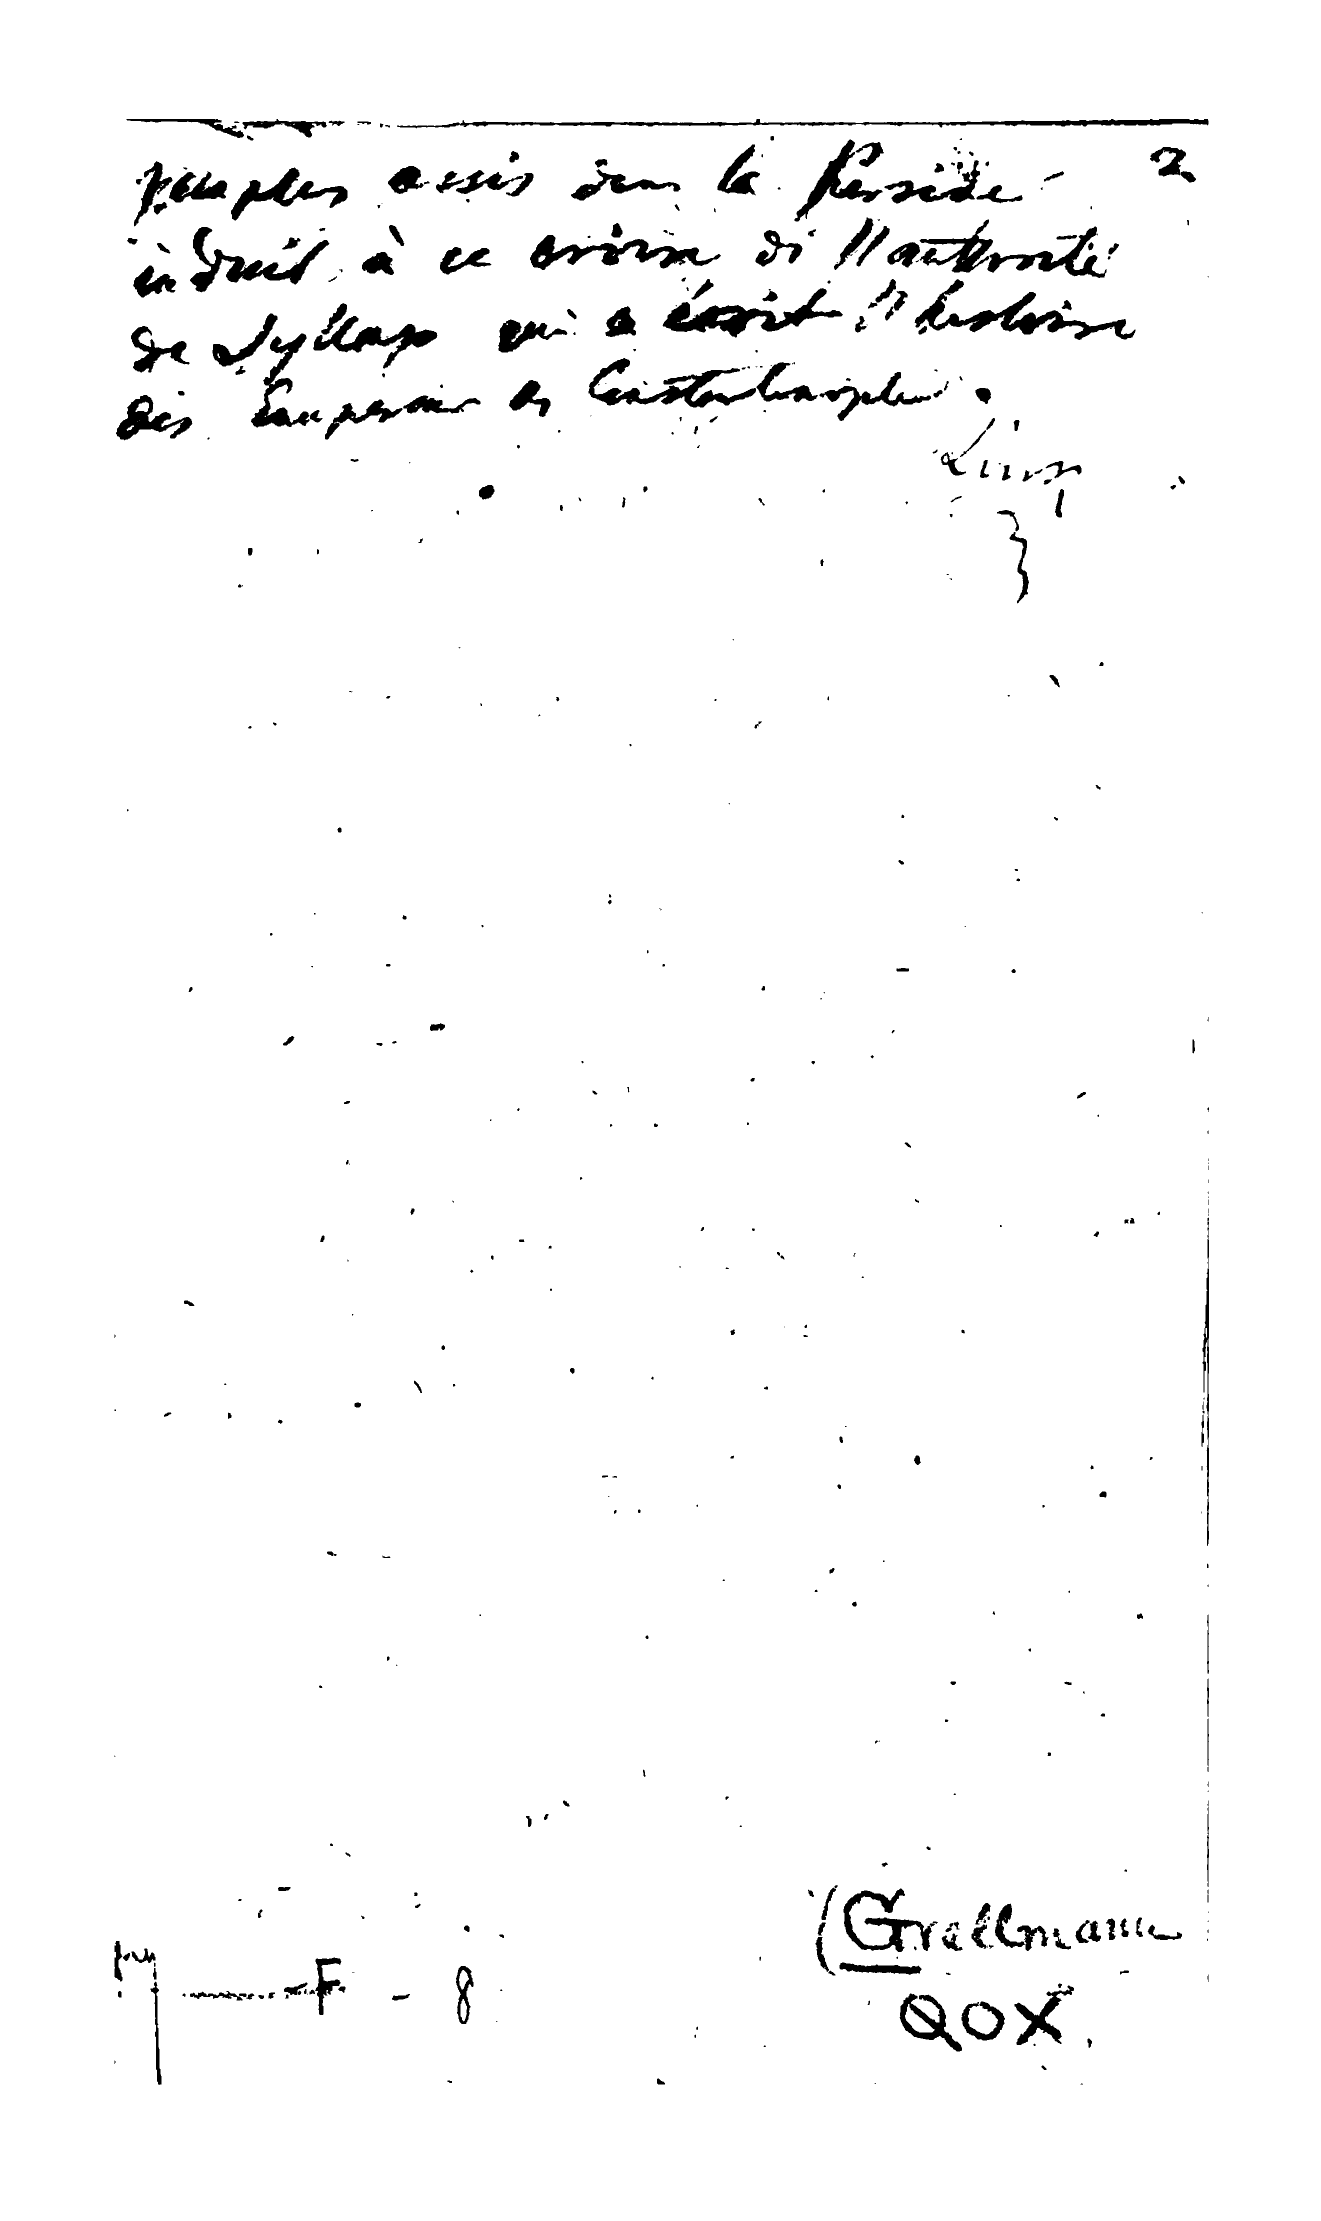 peuples assis dans la Perside 2
induit à ce croire di l'authorité
de qui a écrit l'histoire
des Empereurs de Constantinople.
(Grellmann
F - 8
QOX.